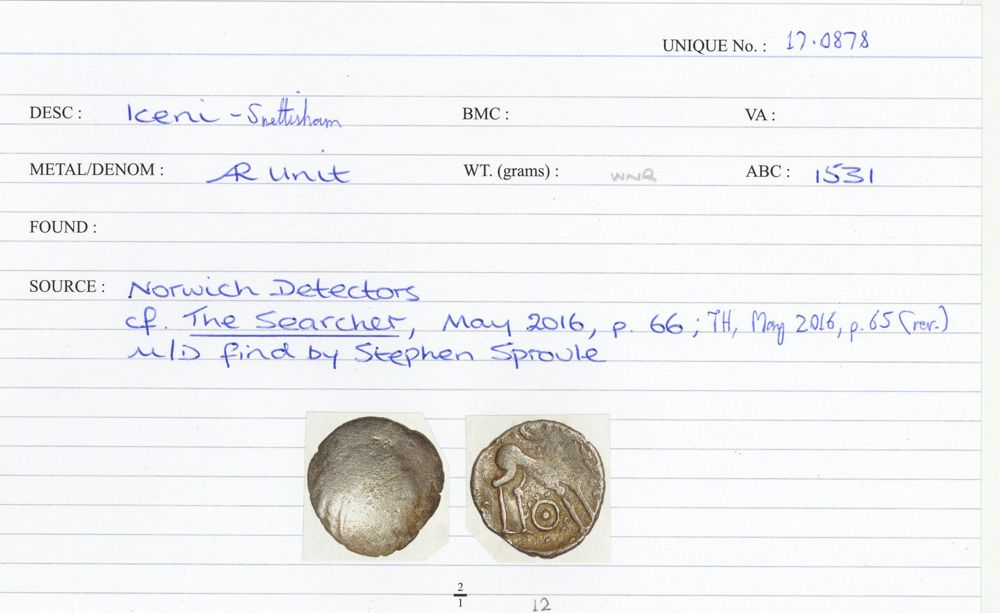 UNIQUE No. : 17.0878
DESC : Iceni - Snettisham BMC : VA :
METAL/DENOM : AR Unit WT. (grams) : WNR ABC : 1531
FOUND :
SOURCE : Norwich Detectors
cf. The Searcher, May 2016, p. 66 ; TH, May 2016, p. 65 (rev.)
M/D find by Stephen Sproule
2
1
12